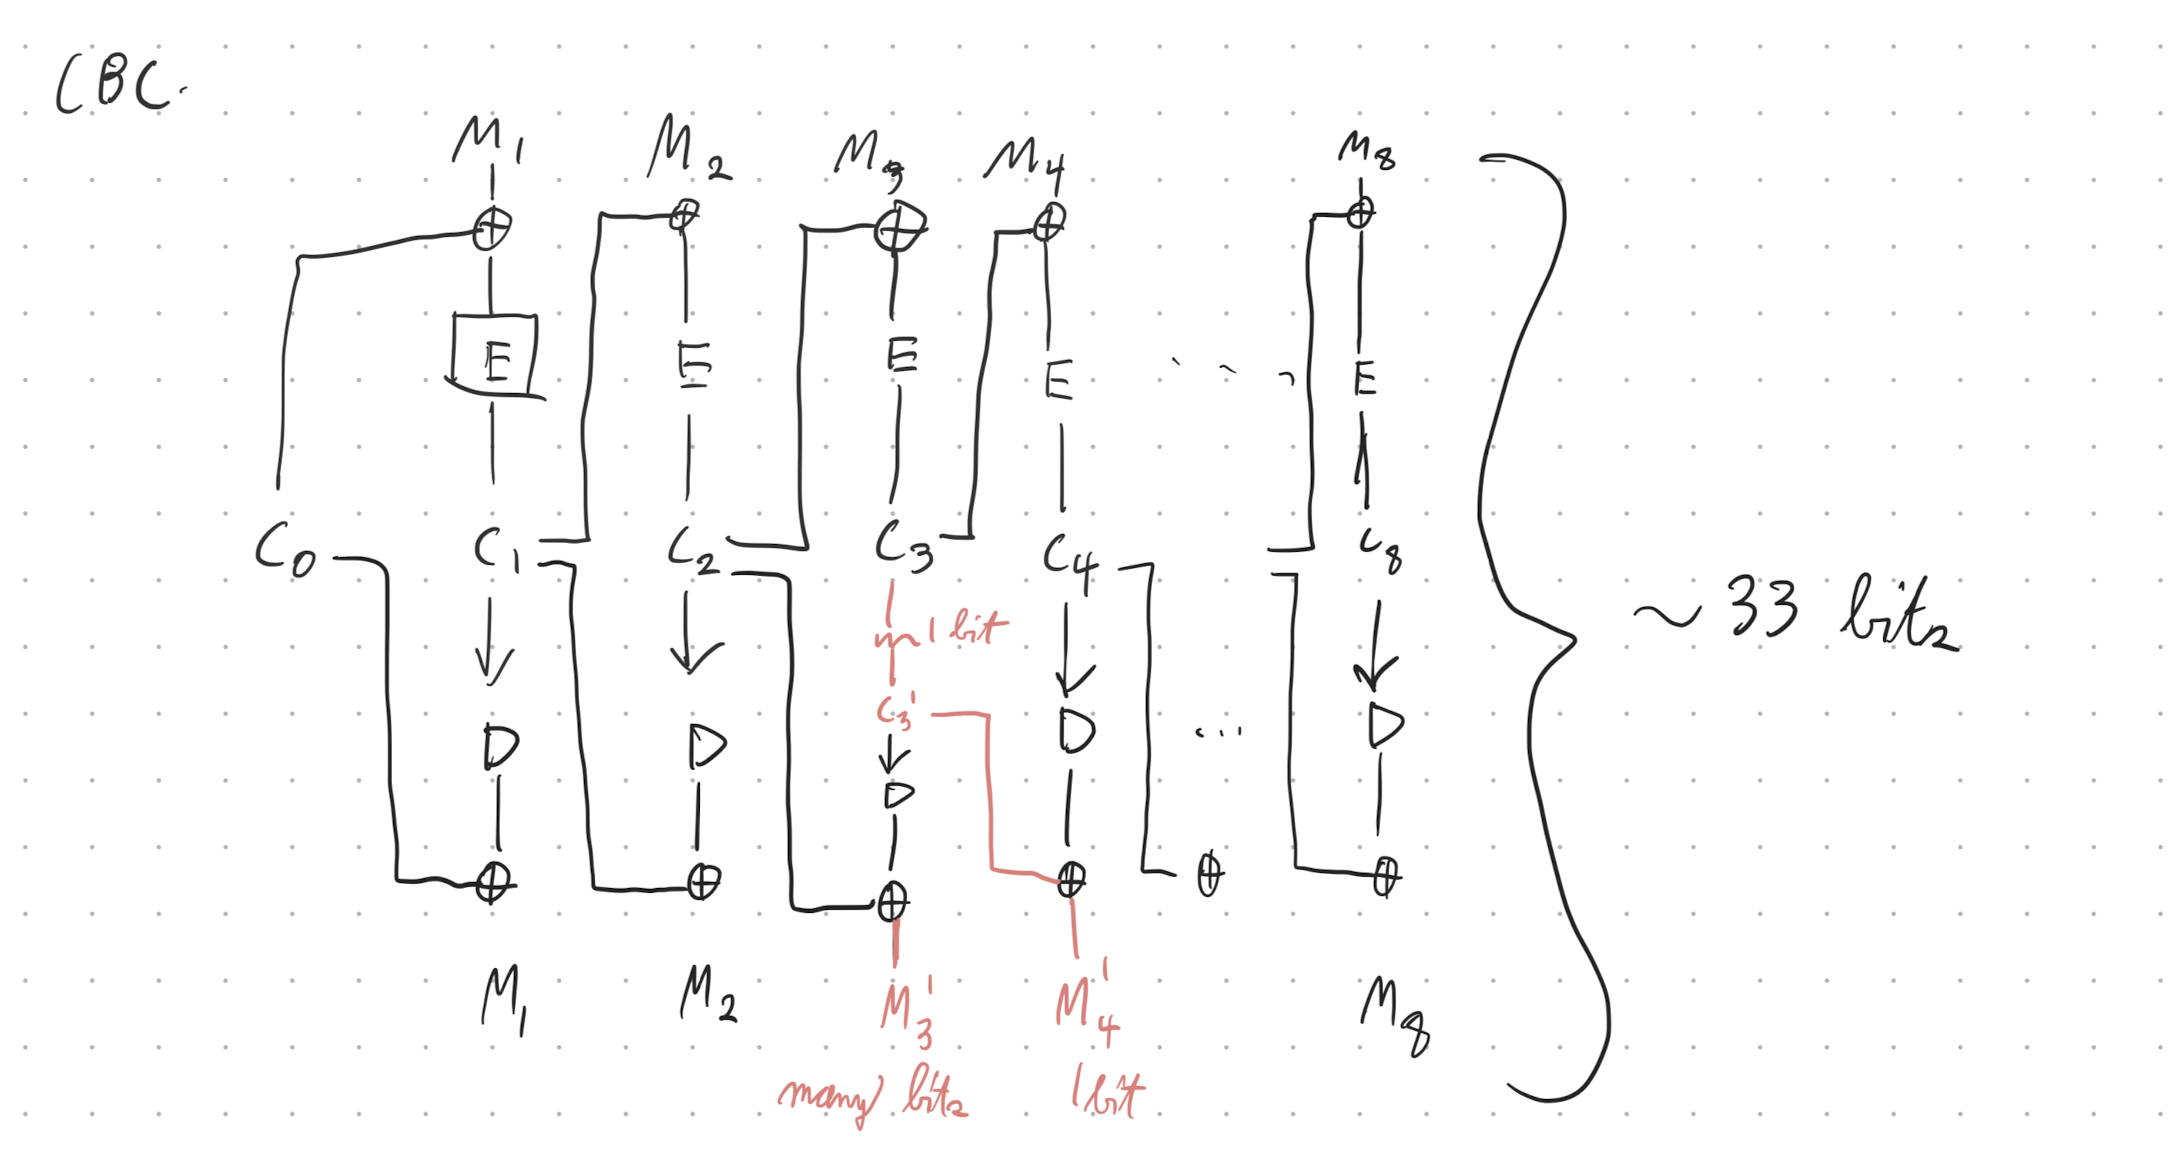 CBC.
M1 M2 M3 M4 M8
⊕ ⊕ ⊕ ⊕ ⊕
E E E E . . . E
C0 C1 C2 C3 C4 C8
~ 33 bits
1 bit
C3'
D D D D ... D
⊕ ⊕ ⊕ ⊕ ⊕ ⊕
M1 M2 M3' M4' M8
many bits 1 bit